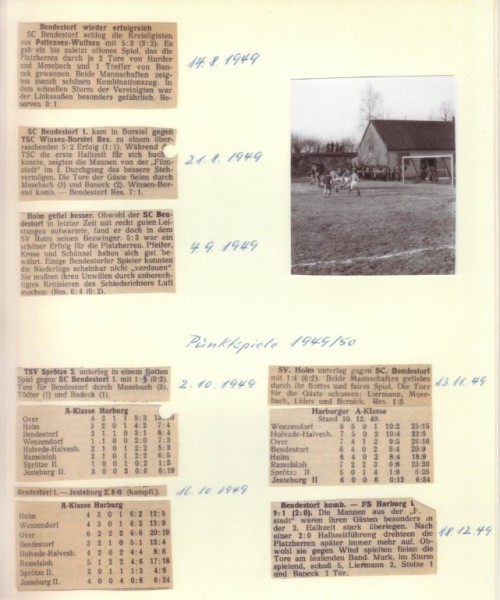 Bendestorf wieder erfolgreich
SC Bendestorf schlug die Kreisligisten
aus Pattensen-Wulfsen mit 5:3 (3:2). Es
gab ein bis zuletzt offenes Spiel, das die
Platzherren durch je 2 Tore von Harder
und Mosebach und 1 Treffer von Ban-
tek gewannen. Beide Mannschaften zeig-
ten manch schönen Kombinationszug. In
dem schnellen Sturm der Vereinigten war
der Linksaußen besonders gefährlich. Re-
serven 0:1.
14.8.1949
SC Bendestorf 1. kam in Borstel gegen
TSC Winsen-Borstel Res. zu einem über-
raschenden 5:2 Erfolg (1:1). Während
TSC die erste Halbzeit für sich buch
konnte, zeigten die Mannen von der „Film-
stadt" im 2. Durchgang das bessere Steh-
vermögen. Die Tore der Gäste fielen durch
Mosebach (3) und Baneck (2). Winsen-Bor-
stel komb. — Bendestorf Res. 7:1.
21.8.1949
Holm gefiel besser. Obwohl der SC Ben-
destorf in letzter Zeit mit recht guten Lei-
stungen aufwartete, fand er doch in dem
SV Holm seinen Bezwinger. 5:3 war ein
schöner Erfolg für die Platzherren. Pfeifer,
Kruse und Schünzel haben sich gut be-
währt. Einige Bendestorfer Spieler konnten
die Niederlage scheinbar nicht „verdauen".
Sie mußten ihren Unwillen durch unberech-
tigtes Kritisieren des Schiedsrichters Luft
machen. (Res. 0:4 (0:2).
4.9.1949
Pünktspiele 1949/50
TSV Sprötze 2. unterlag in einem flotten
Spiel gegen SC Bendestorf 1. mit 1:5 (0:2).
Tore für Bendestorf durch Mosebach (3),
Tödter (1) und Badeck (1).
2.10.1949
A-Klasse Harburg
Over 4 2 1 1 5:3
Holm 3 2 0 1 4:2 7:4
Bendestorf 2 1 1 0 3:1 8:4
Wenzendorf 1 1 0 0 2:0 7:3
Holvede-Halvesb. 2 1 0 1 2:2 5:3
Ramelsloh 2 1 0 1 2:2 6:5
Sprötze II 1 0 0 1 0:2 1:5
Jesteburg II 3 0 0 3 0:6 6:18
Bendestorf 1. — Jesteburg 2. 8:0 (kampfl.)
16.10.1949
A-Klasse Harburg
Holm 4 3 0 1 6:2 12:5
Wenzendorf 4 3 0 1 6:2 13:9
Over 6 2 2 2 6:6 20:19
Bendestorf 3 2 1 0 5:1 13:4
Holvede-Halvesb. 4 2 0 2 4:4 8:6
Ramelsloh 5 1 2 2 4:6 17:18
Sprötze II. 2 0 1 1 1:2 4:9
Jesteburg II. 4 0 0 4 0:8 6:24
SV. Holm unterlag gegen SC. Bendestorf
mit 1:4 (0:2). Beide Mannschaften gefielen
durch ihr flottes und faires Spiel. Die Tore
für die Gäste schossen: Liermann, Mose-
bach, Löhrs und Bernick. Res. 1:3.
13.11.49
Harburger A-Klasse
Stand 10. 12. 49.
Wenzendorf 6 5 0 1 10:2 25:15
Holvede-Halvesb. 7 5 0 2 10:4 22:6
Over 7 4 1 2 9:5 26:16
Bendestorf 6 4 0 2 8:4 20:9
Holm 6 4 0 2 8:4 18:9
Ramelsloh 7 2 2 3 6:8 23:30
Sprötze II 5 0 1 4 1:9 6:25
Jesteburg II 6 0 0 6 0:12 6:34
Bendestorf komb. — FS Harburg
9:1 (2:0). Die Mannen aus der
stadt" waren ihren Gästen besonders in
der 2. Halbzeit stark überlegen. Nach
einer 2:0 Halbzeitführung drehten die
Platzherren später immer mehr auf. Ob-
wohl sie gegen Wind spielten fielen die
Tore am laufenden Band. Murk, im Sturm
spielend, schoß 5, Liermann 2, Stolze 1
und Baneck 1 Tor.
18.12.49